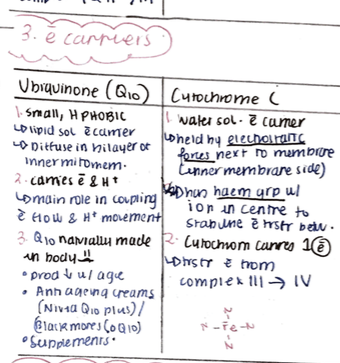 3. ē carriers
Ubiquinone (Q10)
1. small, HPHOBIC
↳ lipid sol ē carrier
↳ Diffuse in bilayer of
inner mitomem.
2. carries ē & H+
↳ main role in coupling
ē flow & H+ movement
3. Q10 naturally made
in body!!
• prod ↓ w/ age
• Anti ageing creams
(Nivea Q10 plus)/
(Blackmores CoQ10)
• Supplements.
Cytochrome C
1. water sol. ē carrier
↳ held by electrostatic
forces next to membrane
(inner membrane side)
↳ has haem grp w/
ion in centre to
stabilise ē trstr betw.
2. Cytochrom carries 1 ē
↳ trstr ē from
complex III → IV
N
N - Fe - N
N